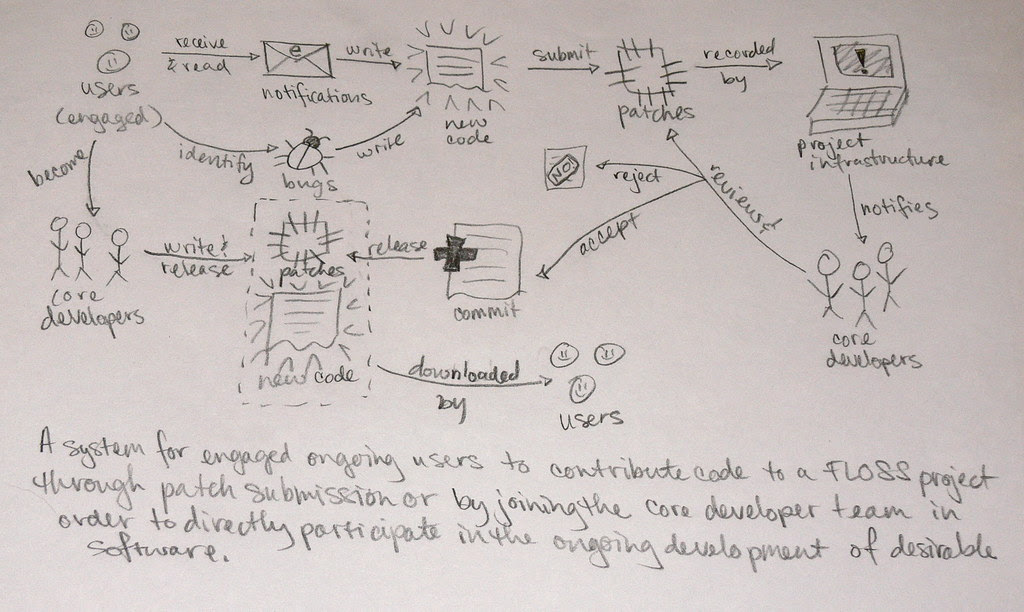 receive
& read
e
write
submit
recorded
by
!
users
(engaged)
notifications
new
code
patches
project
infrastructure
identify
bugs
write
become
NO!
reject
reviews &
notifies
accept
write &
release
patches
release
commit
core
developers
core
developers
new code
downloaded
by
users
A system for engaged ongoing users to contribute code to a FLOSS project
through patch submission or by joining the core developer team in
order to directly participate in the ongoing development of desirable
software.